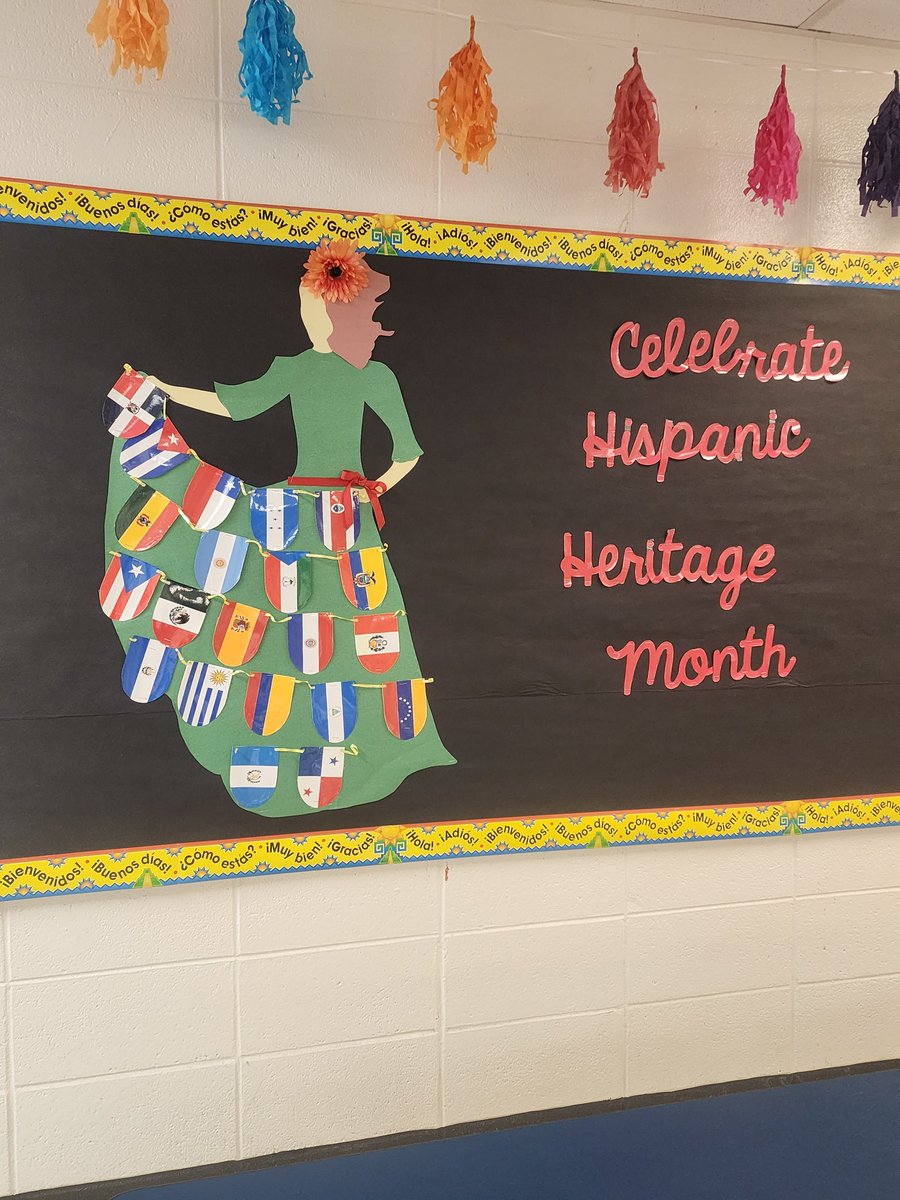 envenidos! • ¡Buenos días! • ¿Cómo estás? • ¡Muy bien! • ¡Gracias! ¡Hola! • ¡Adiós! • ¡Bienvenidos! • ¡Buenos días! • ¿Cómo estás? • ¡Muy bien! • ¡Gracias! ¡Hola! • ¡Adiós! • ¡Bien
Celebrate
Hispanic
Heritage
Month
¡Bienvenidos! • ¡Buenos días! • ¿Cómo estás? • ¡Muy bien! • ¡Gracias! ¡Hola! • ¡Adiós! • ¡Bienvenidos! • ¡Buenos días! • ¿Cómo estás? • ¡Muy bien! • ¡Gracias! ¡Hola! • ¡Adiós! • ¡Bienve